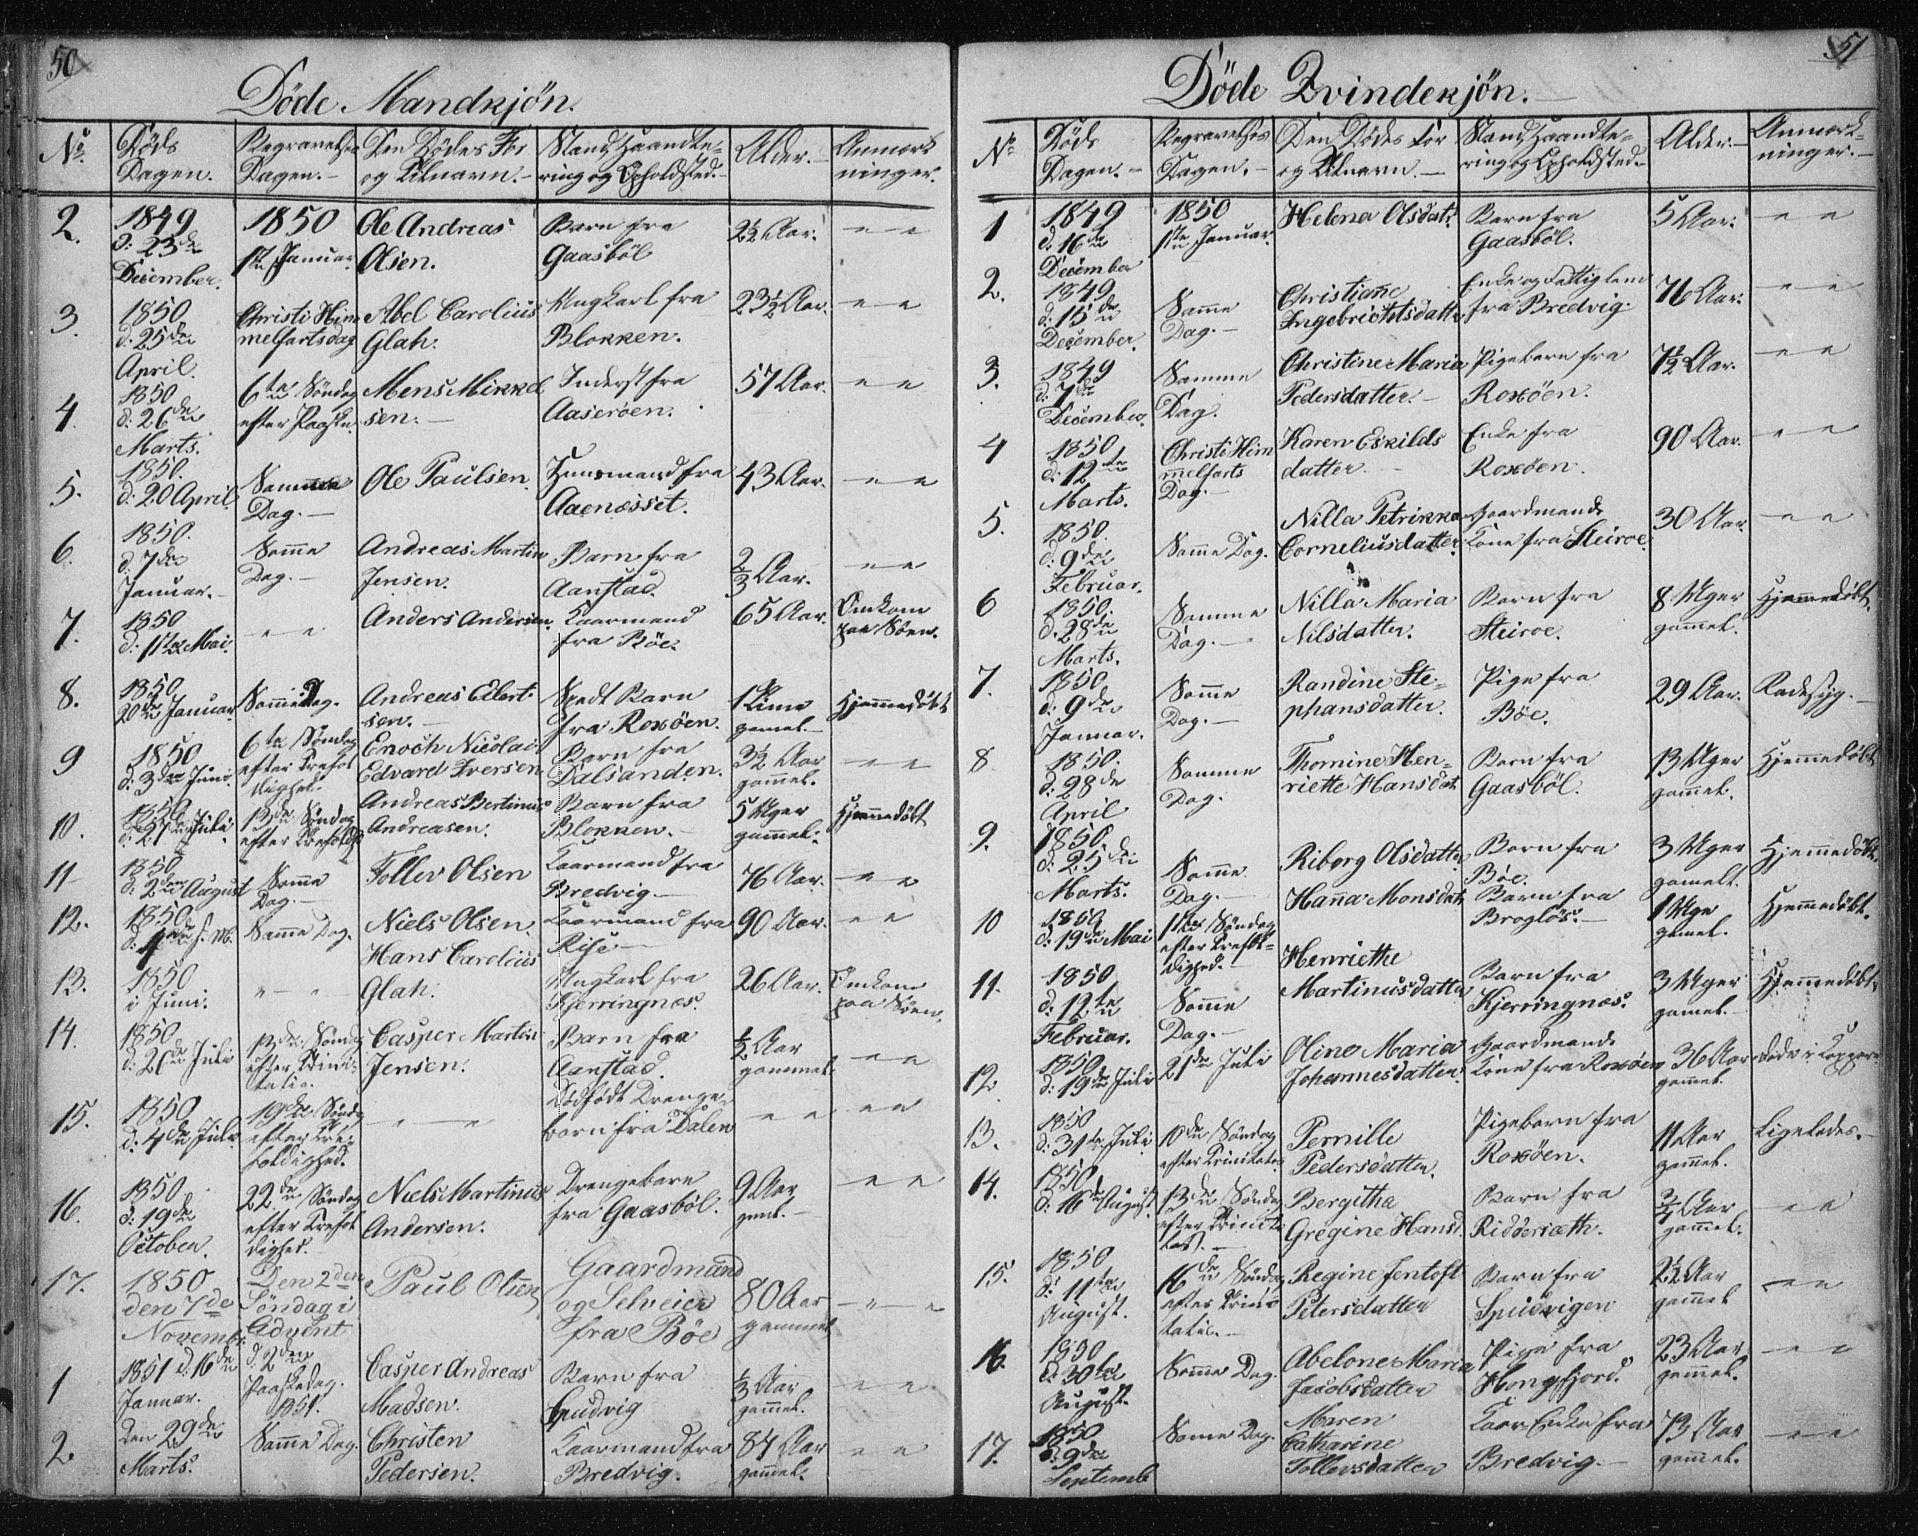 50
Døde Mandkjøn.
No. Døds Dagen. Begravelses Dagen. Den Dødes For og Tilnavn. Stand, Haandtering og Opholdsted. Alder. Anmærkninger.
2. 1849 d: 23de December. 1850 1ste Januar. Ole Andreas Olsen. Barn fra Gaasböl 2½ Aar. " "
3. 1850 d. 25de April. Christi Himmelfartsdag Abel Carolius Glah. Ungkarl fra Blokken. 23½ Aar. " "
4. 1850 d: 26de Marts. 6te Søndag efter Paaske. Mens Mikkelsen. Inderst fra Aaseroen. 57 Aar. " "
5. 1850. d: 20 April. Samme Dag. Ole Paulsen. Huusmand fra Aaenæsset. 43 Aar. " "
6. 1850. d: 7de Januar. Samme Dag. Andreas Martin Jensen. Barn fra Aanstad. 2/3 Aar. " "
7. 1850 d: 11te Mai. " " Anders Andersen. Kaarmand fra Böe. 65 Aar. Omkom paa Søen.
8. 1850 20de Januar. Samme Dag. Andreas Eilertsen. Spedt Barn fra Roxöen. 1 Time gamel. Hjemmedöbt
9 1850 d: 3die Juni. 6te Søndag efter Trefoldighed. Enoch Nicolai Edvard Iversen Barn fra Dalsanden. 3½ Aar gammel. " "
10. 1850 d: 21de Juli. 13de Søndag efter Trefold. Andreas Bertinus Andreasen. Barn fra Blokken. 5 Uger gammel. Hjemmedöbt
11 1850 d: 2den August Samme Dag. Tollev Olsen Kaarmand fra Bredvig. 76 Aar. " "
12. 1850 d: 4de s. M. Samme Dag. Niels Olsen. Kaarmand fra Rise 90 Aar. " "
13. 1850 i Juni. " " Hans Carolius Glah. Ungkarl fra Kjerringnes. 26 Aar. Omkom paa Søen.
14. 1850 d: 26de Juli 13de Søndag efter Trinitatis. Casper Martin Jensen. Barn fra Aanstad. ½ Aar gammel. " "
15. 1850. d: 4de Juli 19de Søndag efter Trefoldighed. " " Dødfödt Drengebarn fra Dalen " " " "
16. 1850. d: 19de October. 22de Søndag efter Trefoldighed. Niels Martinus Andersen. Drengebarn fra Gaasböl. 9 Aar gml. " "
17. 1850 den 7de Novembr. Den 2den Søndag i Advent Paul Olsen Gaardmand og Selveier fra Böe 80 Aar gammel " "
1 1851 d. 16de Januar. d. 2den Paaskedag. 1851. Casper Andreas Madsen. Barn fra Spudvig 1/3 Aar gammel. " "
2 Den 29de Marts. Samme Dag. Christen Pedersen. Kaarmand fra Bredvig. 84 Aar gammel. " "
51
Døde Qvindekjön.
No. Døds Dagen. Begravelses Dagen. Den Dødes For og Tilnavn. Stand, Haandtering og Opholdsted. Alder. Anmærkninger.
1 1849 d. 16de December 1850 1ste Januar. Helena Olsdat. Barn fra Gaasböl. 5 Aar. " "
2. 1849. d. 15de December. Samme Dag. Christiane Ingebrichtsdatter Enke og Fattiglem fra Bredvig. 76 Aar. " "
3. 1849 d. 7de December. Samme Dag. Christine Maria Pedersdatter. Pigebarn fra Roxöen. 7½ Aar. " "
4 1850. d. 12te Marts. Christi Himmelfarts Dag. Karen Eskildsdatter. Enke fra Roxöen. 90 Aar. " "
5. 1850. d: 9de Februar. Samme Dag. Nilla Petrikka Corneliusdatter. Gaardmands Kone fra Steiroe. 30 Aar. " "
6 1850. d. 28de Marts. Samme Dag. Nilla Maria Nilsdatter. Barn fra Steiroe. 8 Uger gammel. Hjemmedöbt.
7. 1850. d: 9de Januar. Samme Dag. Randine Stephansdatter. Pige fra Böe. 29 Aar. Radesyg.
8. 1850. d: 28de April Samme Dag. Thomine Henriette Hansdat. Barn fra Gaasböl. 13 Uger gammel. Hjemmedöbt
9. 1850. d: 25de Marts. Samme Dag. Riborg Olsdatter. Barn fra Böe. 3 Uger gamel. Hjemmedöbt.
10 1850 d: 19de Mai 1ste Søndag efter Trefoldighed. Hanna Monsdat. Barn fra Broglös. 1 Uge gamel. Hjemmedöbt.
11. 1850 d: 12te Februar. Samme Dag. Henriethe Martinusdatter Barn fra Kjerringnes. 3 Uger gamel. Hjemmedöbt.
12. 1850. d: 19de Juli 21de Juli Oline Maria Johannesdatter. Gaardmands Kone fra Roxöen 36 Aar gammel. døde i Kopper
13. 1850 d: 31te Juli. 10de Søndag efter Trinitatis Pernille Pedersdatter. Pigebarn fra Roxöen. 11 Aar gammel. Ligeledes.
14. 1850 d: 16de August. 13de Søndag efter Trinitatis. Bergitha Gregine Hansd. Barn fra Ridderiæth. ¾ Aar gammel. " "
15. 1850 d: 11te August. 16de Søndag efter Trinitatis. Regine Jentoft Petersdatter Barn fra Spudvigen 2½ Aar gammel " "
16. 1850 d. 30te August. Samme Dag. Abelone Maria Jacobsdatter Pige fra Hongfjord. 23 Aar gammel. " "
17. 1850 d: 9de Septemb Samme Dag. Maren Catharine Tollevsdatter Kaar Enke fra Bredvig. 73 Aar gammel. " "